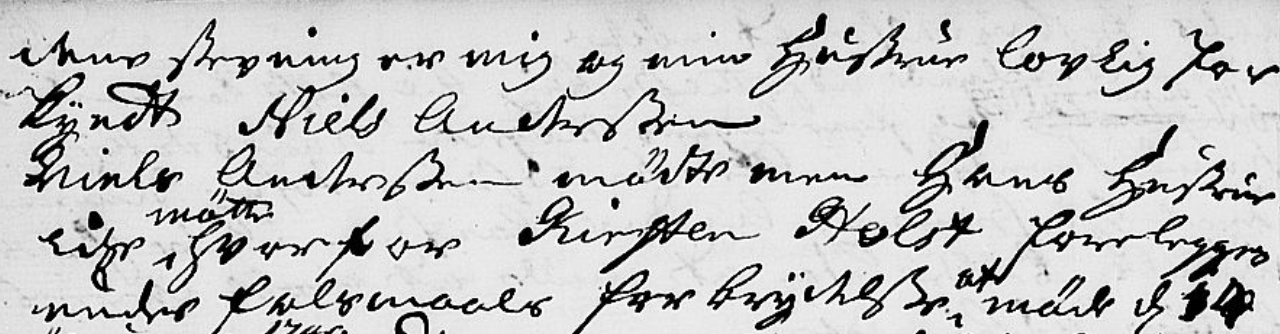 denne stevning er mig og min Hustrue lovlig for
kyndt Niels Anderssen
Niels Anderssen mødte men Hans Hustrue
icke mötte hvorfor Kirsten Holst forelegges
under falsmaals forbrydelsse at møde d 14